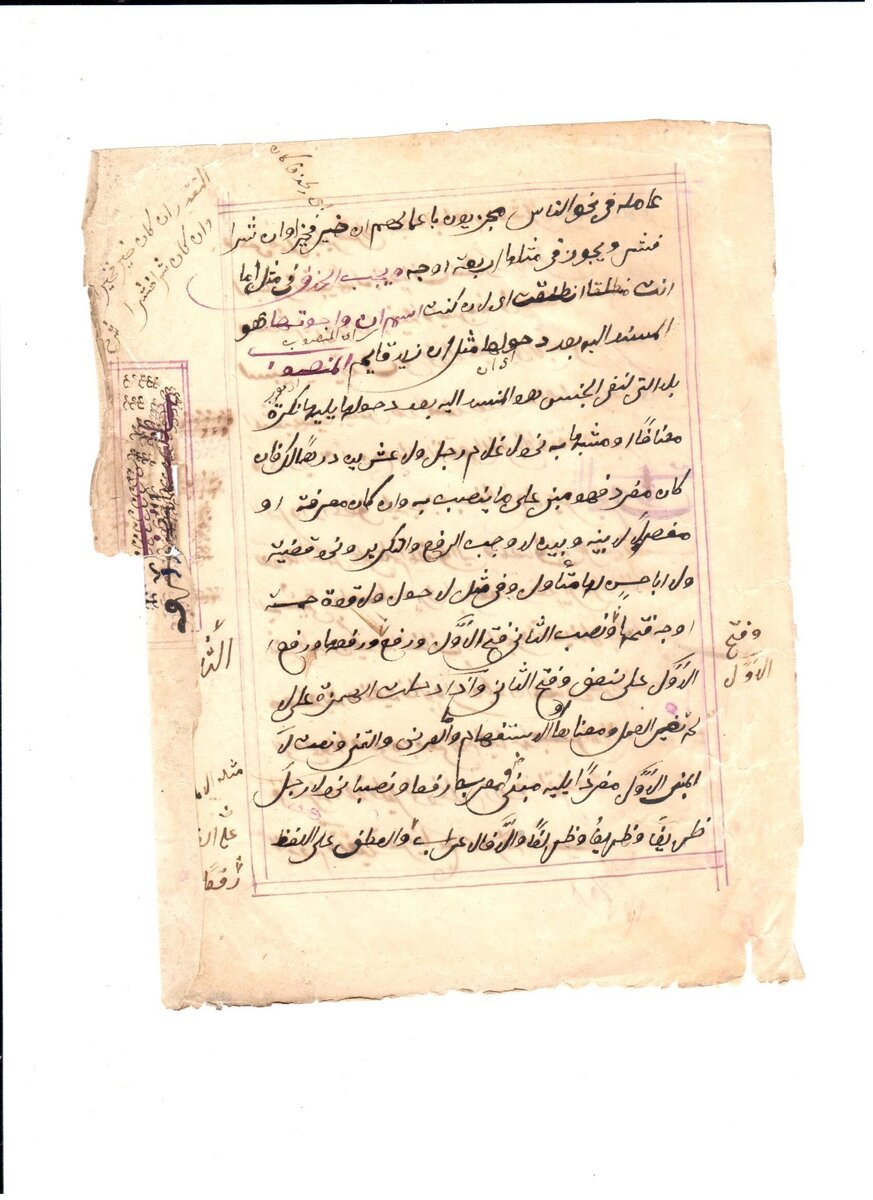 عامله فى نحو الناس مجزيون باعمالهم ان خير فخير وان شرا
فشر ويجوز فى مثلها اربعة اوجه ويجب الحذف فى مثل اما
انت منطلقا انطلقت اى لان كنت اسم ان واخوتها هو
المسند اليه بعد دخولها مثل ان زيد قايم المنصوب
بلا التى لنفى الجنس هو المسند اليه بعد دخولها يليها نكرة
مضافا او مشبها به نحو لا غلام رجل ولا عشرين درهما لك فان
كان مفرد فهو مبنى على ما ينصب به وان كان معرفة او
مفصولا بينه وبين لا وجب الرفع والتكرير ونحو قضية
ولا ابا حسن لها متاول وفى مثل لا حول ولا قوة خمسة
اوجه فتحها ونصب الثانى فتح الاَوَّل ورفع ورفعها ورفع ا
الاَوَّل على ضعف وفتح الثانى واذا دخلت الهمزة على لا
لم تغير العمل ومعناها الاستفهام والعرض والتمنى ونعت لَا
المبنى الاَوَّل مفردًا يليه مبنى ومعرب رفعا ونصبا نحو لا رجل
ظريفَ وظريفٌ وظريفًا والَّا فالاعراب والعطف على اللفظ
التقدير ان كان خير فخير
وان كان شرا فشرا
شرح
اى ان
وفتح
الاَوَّل
مثله
رفعًا